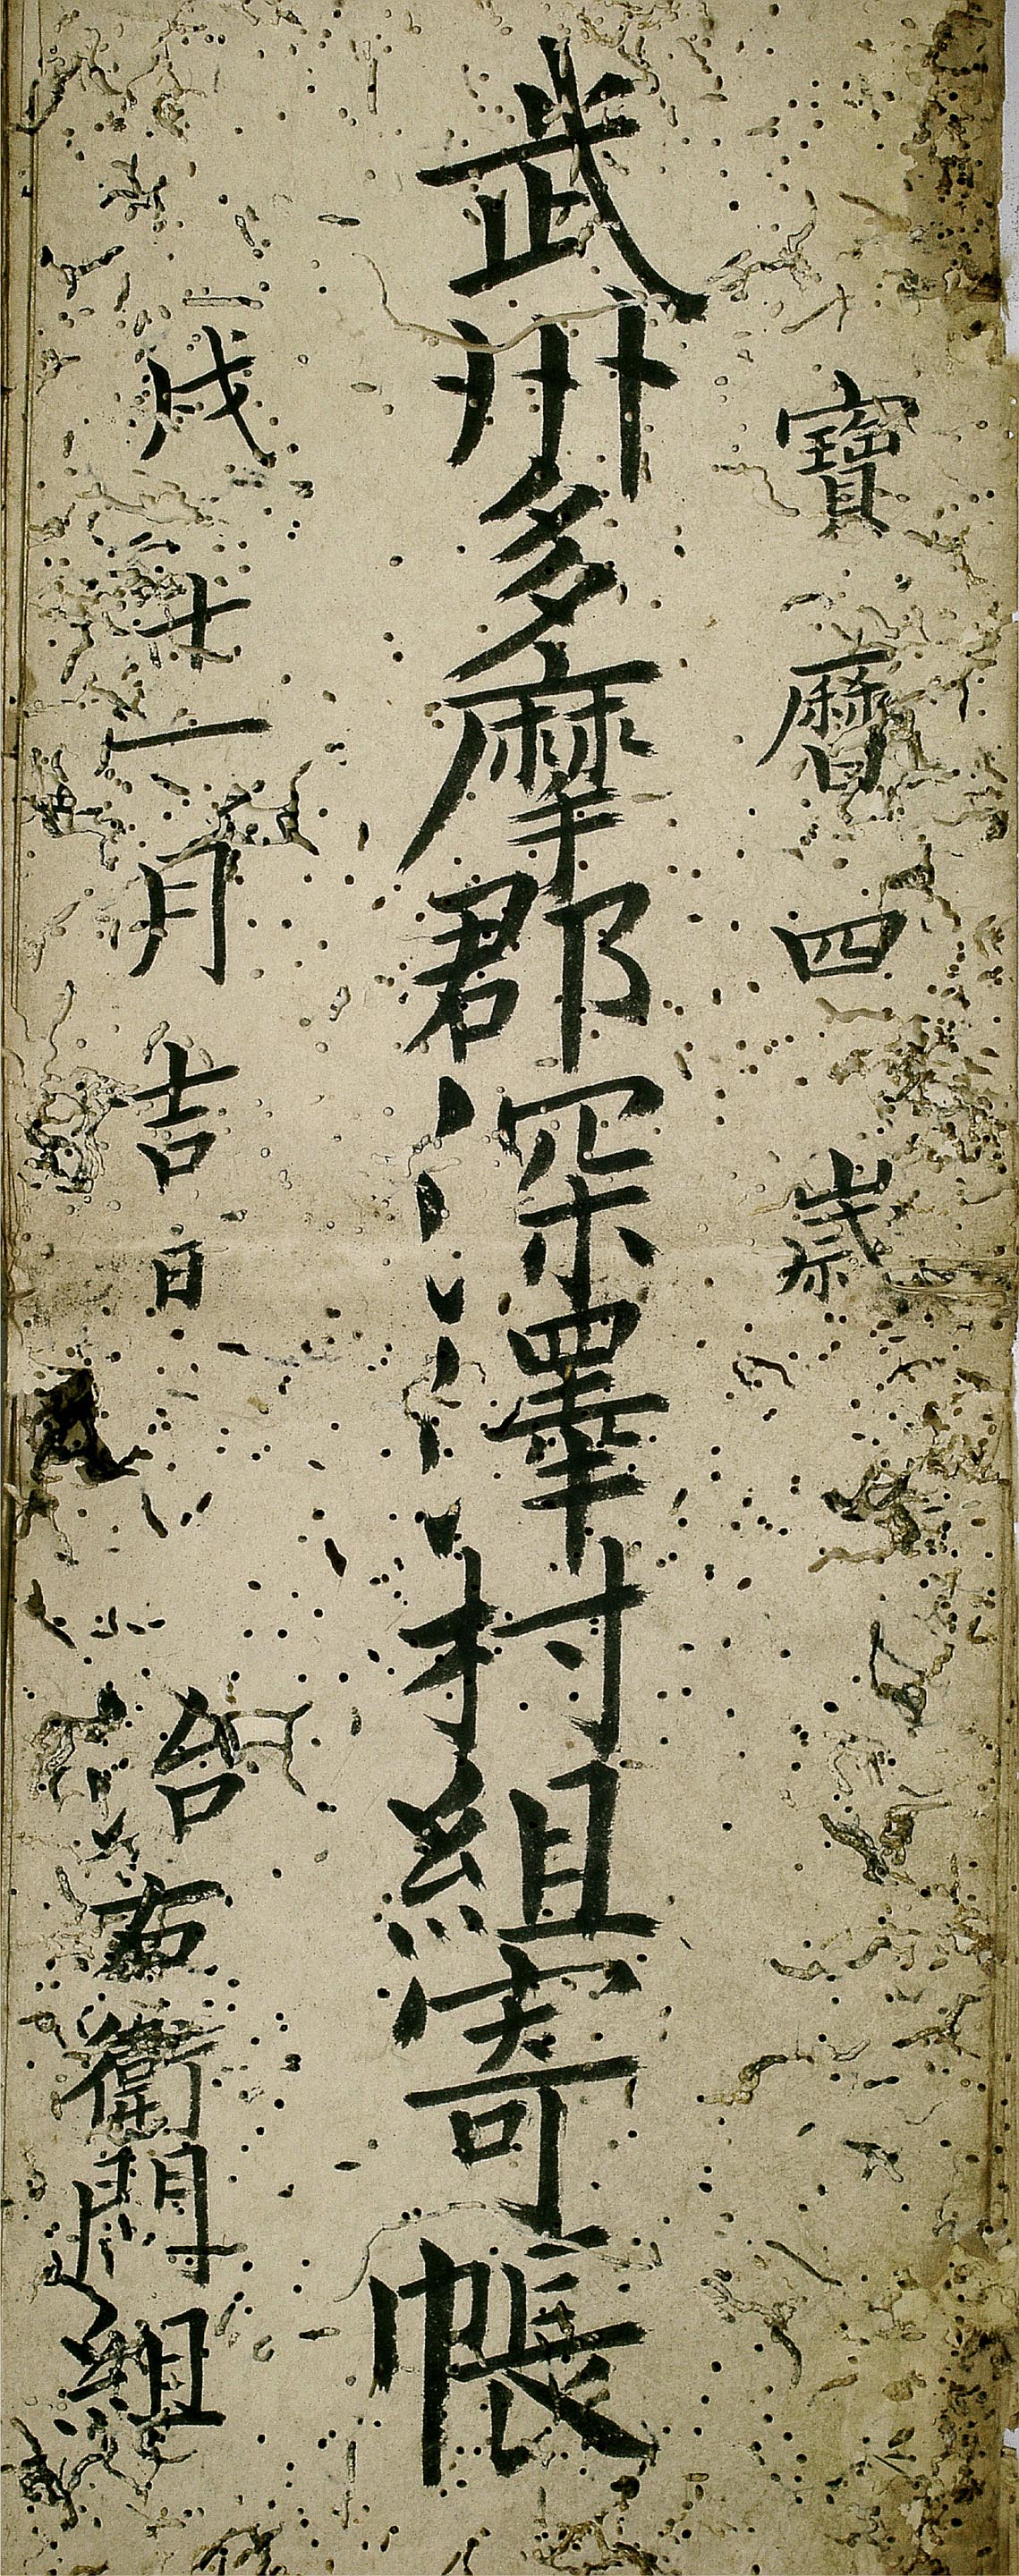 寶曆四歳
武州多摩郡深澤村組寄帳
戌十一月吉日 治右衛門組